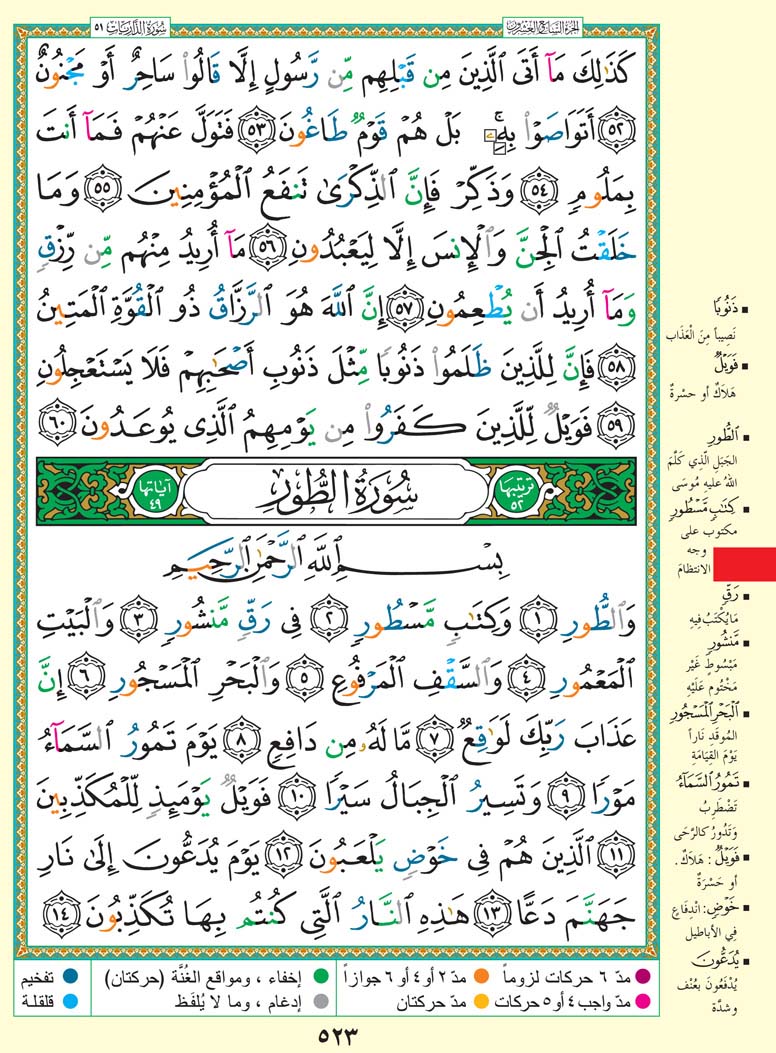 الجزء السابع والعشرون
سورة الذاريات ٥١
كَذَٰلِكَ مَآ أَتَى ٱلَّذِينَ مِن قَبْلِهِم مِّن رَّسُولٍ إِلَّا قَالُوا۟ سَاحِرٌ أَوْ مَجْنُونٌ
٥٢ أَتَوَاصَوْا۟ بِهِۦ ۚ بَلْ هُمْ قَوْمٌ طَاغُونَ ٥٣ فَتَوَلَّ عَنْهُمْ فَمَآ أَنتَ
بِمَلُومٍ ٥٤ وَذَكِّرْ فَإِنَّ ٱلذِّكْرَىٰ تَنفَعُ ٱلْمُؤْمِنِينَ ٥٥ وَمَا
خَلَقْتُ ٱلْجِنَّ وَٱلْإِنسَ إِلَّا لِيَعْبُدُونِ ٥٦ مَآ أُرِيدُ مِنْهُم مِّن رِّزْقٍ
وَمَآ أُرِيدُ أَن يُطْعِمُونِ ٥٧ إِنَّ ٱللَّهَ هُوَ ٱلرَّزَّاقُ ذُو ٱلْقُوَّةِ ٱلْمَتِينُ
٥٨ فَإِنَّ لِلَّذِينَ ظَلَمُوا۟ ذَنُوبًا مِّثْلَ ذَنُوبِ أَصْحَٰبِهِمْ فَلَا يَسْتَعْجِلُونِ
٥٩ فَوَيْلٌ لِّلَّذِينَ كَفَرُوا۟ مِن يَوْمِهِمُ ٱلَّذِى يُوعَدُونَ ٦٠
ترتيبها ٥٢
سُورَةُ الطُّورِ
آياتها ٤٩
بِسْمِ ٱللَّهِ ٱلرَّحْمَٰنِ ٱلرَّحِيمِ
وَٱلطُّورِ ١ وَكِتَٰبٍ مَّسْطُورٍ ٢ فِى رَقٍّ مَّنشُورٍ ٣ وَٱلْبَيْتِ
ٱلْمَعْمُورِ ٤ وَٱلسَّقْفِ ٱلْمَرْفُوعِ ٥ وَٱلْبَحْرِ ٱلْمَسْجُورِ ٦ إِنَّ
عَذَابَ رَبِّكَ لَوَٰقِعٌ ٧ مَّا لَهُۥ مِن دَافِعٍ ٨ يَوْمَ تَمُورُ ٱلسَّمَآءُ
مَوْرًا ٩ وَتَسِيرُ ٱلْجِبَالُ سَيْرًا ١٠ فَوَيْلٌ يَوْمَئِذٍ لِّلْمُكَذِّبِينَ
١١ ٱلَّذِينَ هُمْ فِى خَوْضٍ يَلْعَبُونَ ١٢ يَوْمَ يُدَعُّونَ إِلَىٰ نَارِ
جَهَنَّمَ دَعًّا ١٣ هَٰذِهِ ٱلنَّارُ ٱلَّتِى كُنتُم بِهَا تُكَذِّبُونَ ١٤
■ ذَنُوبًا
نَصيباً مِنَ العَذَاب
■ فَوَيْلٌ
هَلَاكٌ أو حسْرةٌ
■ ٱلطُّورِ
الجَبَل الّذي كَلَّمَ
اللهُ عليهِ مُوسَى
■ كِتَٰبٍ مَّسْطُورٍ
مكتوب على
وجه
الانتظام
■ رَقٍّ
مَا يُكْتَبُ فِيهِ
■ مَّنشُورٍ
مَبْسُوطٍ غَيْر
مَخْتُوم عَلَيْهِ
■ ٱلْبَحْرِ ٱلْمَسْجُورِ
المُوقَدِ نَاراً
يَوْمَ القِيَامَةِ
■ تَمُورُ ٱلسَّمَآءُ
تَضْطَرِبُ
وَتَدُورُ كالرَّحَى
■ فَوَيْلٌ: هَلَاكٌ.
أو حَسْرَةٌ
■ خَوْضٍ: انْدِفَاعٍ
فِي الأباطيل
■ يُدَعُّونَ
يُدْفَعُونَ بِعُنْف
وشدَّة
مدّ ٦ حركات لزوماً
مدّ ٢ أو ٤ أو ٦ جوازاً
إخفاء ، ومواقع الغُنَّة (حركتان)
تفخيم
مدّ واجب ٤ أو ٥ حركات
مدّ حركتان
إدغام ، وما لا يُلفَظ
قلقلة
٥٢٣